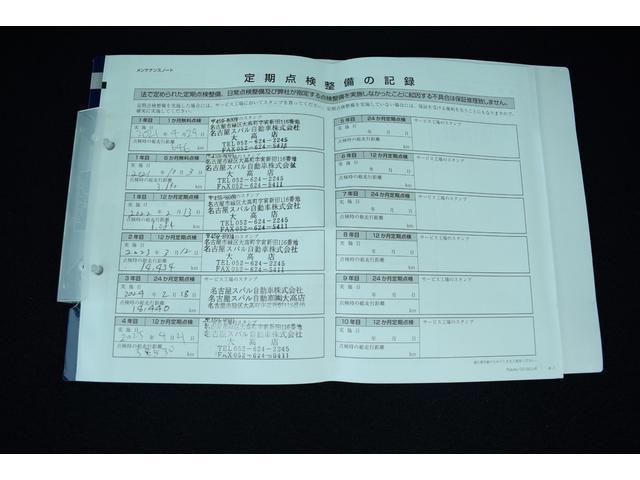 メンテナンスノート
定期点検整備の記録
法で定められた定期点検整備、日常点検整備及び弊社が指定する点検整備を実施しなかったことに起因する不具合は保証修理致しません。
1年目 1か月無料点検
実施日
2021年4月29日
点検時の総走行距離
646 km
名古屋市緑区大高町字寅新田116番地
名古屋スバル自動車株式会社
大高店
TEL052-624-2245
FAX052-624-5411
1年目 6か月無料点検
実施日
点検時の総走行距離
km
名古屋市緑区大高町字寅新田116番地
名古屋スバル自動車株式会社
大高店
TEL052-624-2245
FAX052-624-5411
1年目 12か月定期点検
実施日
2022年2月13日
点検時の総走行距離
km
名古屋市緑区大高町字寅新田116番地
名古屋スバル自動車株式会社
大高店
TEL052-624-2245
FAX052-624-5411
2年目 12か月定期点検
実施日
2023年3月12日
点検時の総走行距離
14,434 km
名古屋市緑区大高町字寅新田116番地
名古屋スバル自動車株式会社
大高店
TEL052-624-2245
FAX052-624-5411
3年目 24か月定期点検
サービス工場のスタンプ
実施日
2024年2月18日
点検時の総走行距離
18,440 km
名古屋スバル自動車株式会社
名古屋スバル自動車㈱大高店
4年目 12か月定期点検
実施日
2025年4月4日
点検時の総走行距離
km
名古屋市緑区大高町字寅新田116番地
名古屋スバル自動車株式会社
大高店
TEL052-624-2245
FAX052-624-5411
5年目 24か月定期点検
サービス工場のスタンプ
実施日
年 月 日
点検時の総走行距離
km
6年目 12か月定期点検
サービス工場のスタンプ
実施日
年 月 日
点検時の総走行距離
km
7年目 24か月定期点検
サービス工場のスタンプ
実施日
年 月 日
点検時の総走行距離
km
8年目 12か月定期点検
サービス工場のスタンプ
実施日
年 月 日
点検時の総走行距離
km
9年目 24か月定期点検
サービス工場のスタンプ
実施日
年 月 日
点検時の総走行距離
km
10年目 12か月定期点検
サービス工場のスタンプ
実施日
年 月 日
点検時の総走行距離
km